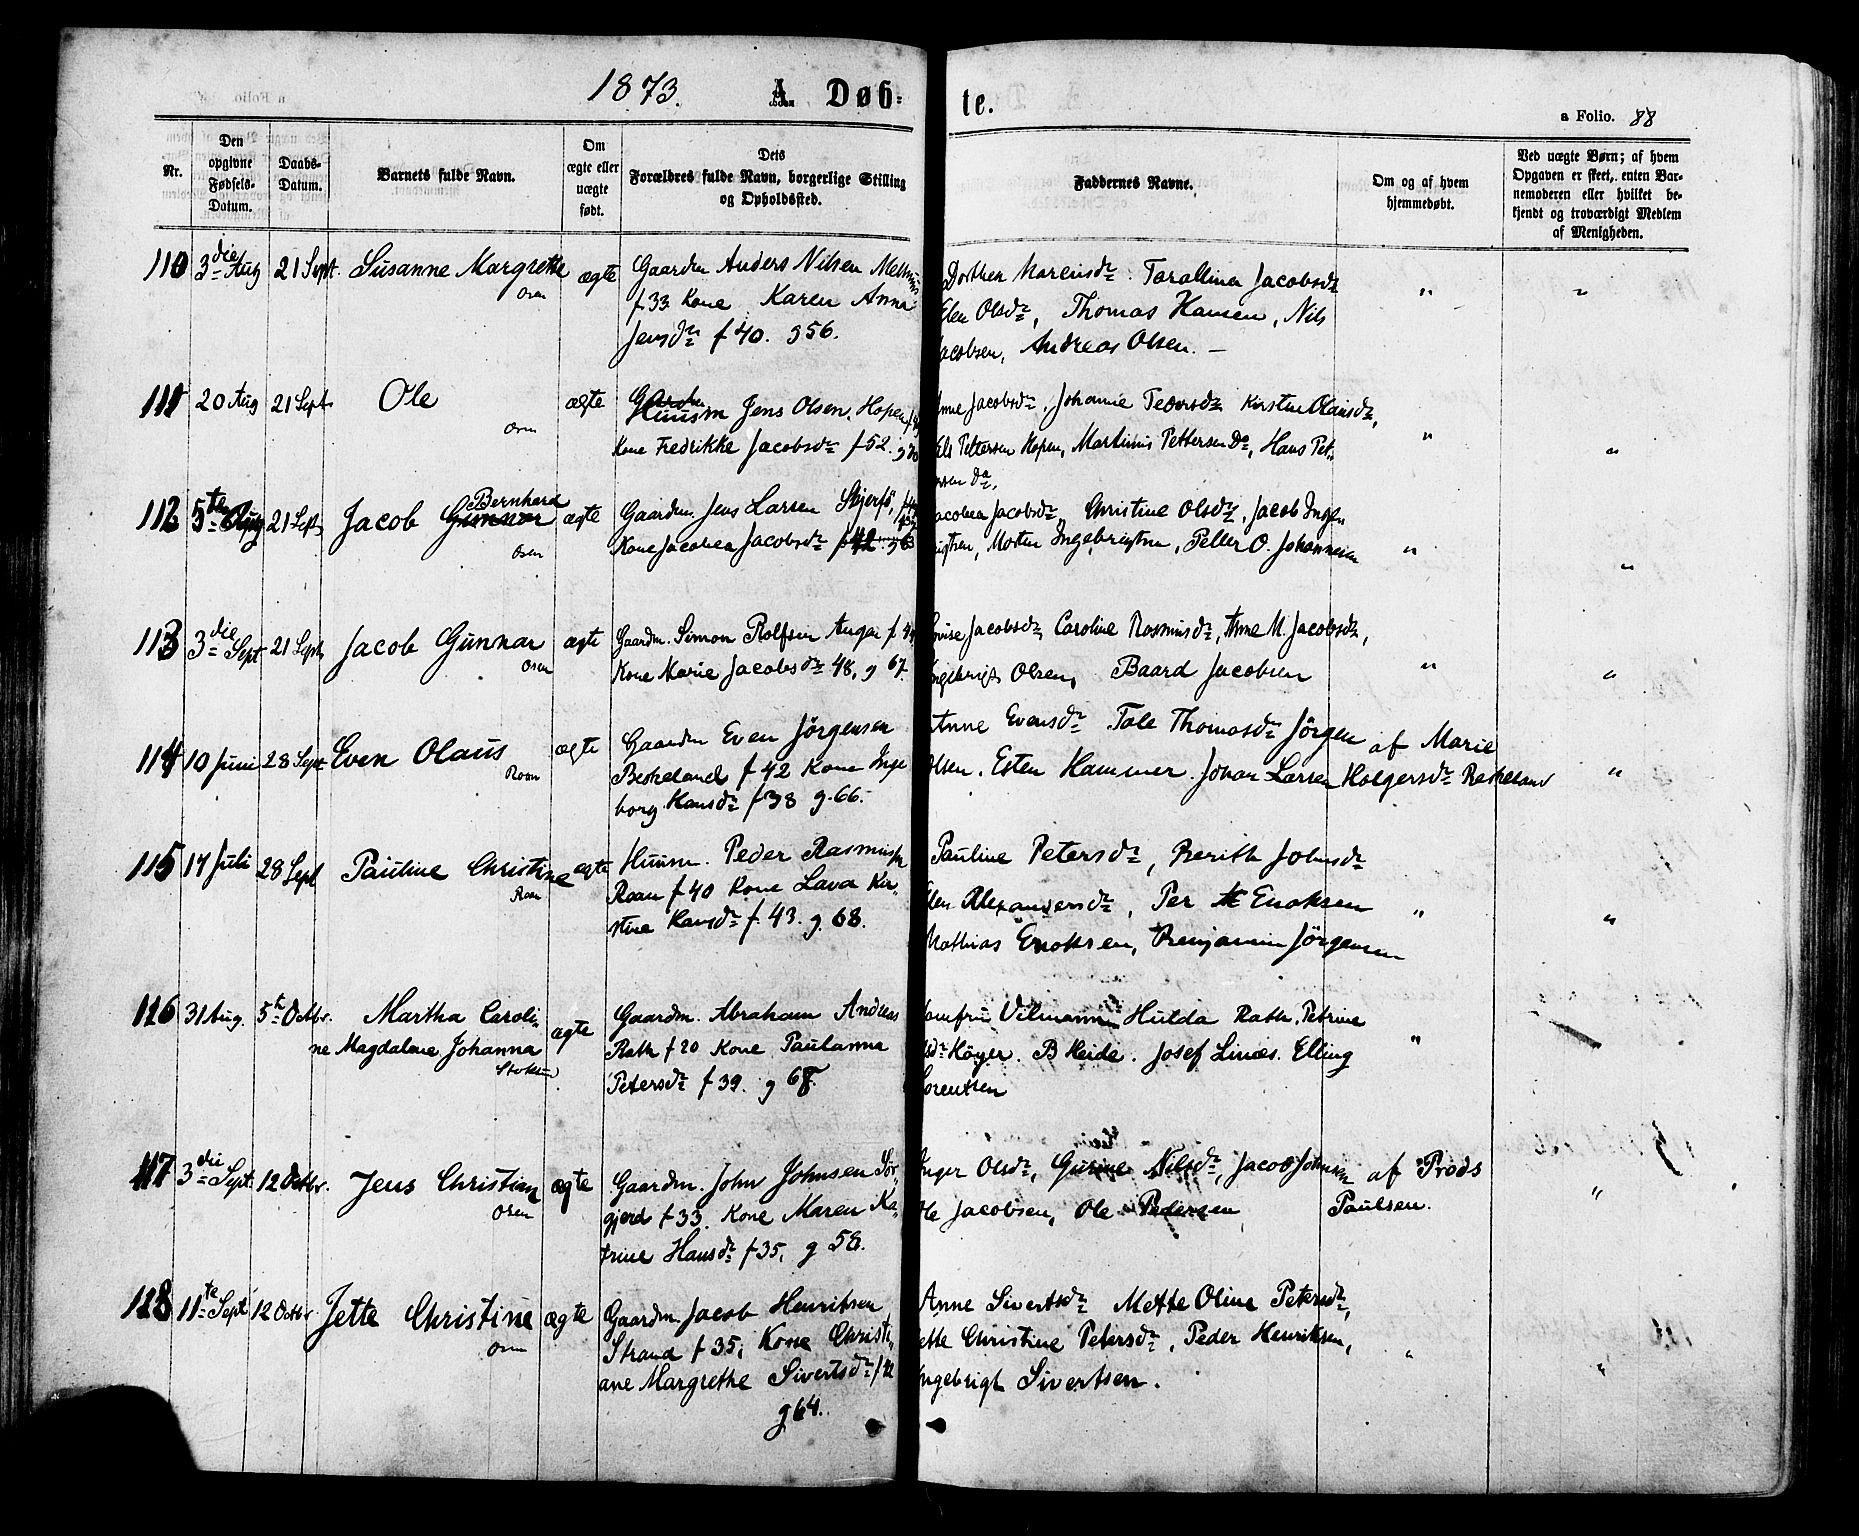 1873. A Døb-
te.
a Folio. 88
Nr.
Den opgivne Fødsels-Datum.
Daabs-Datum.
Barnets fulde Navn.
Om ægte eller uægte født.
Dets Forældres fulde Navn, borgerlige Stilling og Opholdssted.
Faddernes Navne.
Om og af hvem hjemmedøbt.
Ved uægte Børn; af hvem Opgaven er skeet, enten Barnemoderen eller hvilket bekjendt og troværdigt Medlem af Menigheden.
110 3die Aug 21 Sept. Susanne Margrethe ægte Gaardm Anders Nilsen
Osen f. 33 Kone Karen Anna
Jensdr f 40. g 56.
Dorthea Tarallina Jacobsdr " "
Olsdr, Thomas Hansen, Nils
Jacobsen, Andreas Olsen. —
111 20 Aug 21 Sept Ole ægte Gaardm Huusm Jens Olsen, Hopen
Osen Kone Fredrikke Jacobsdr f 52. g 70
Anne Jacobsdr, Johanne Kirstine Olausdr, " "
Nils Pettersen Hopen, Martinus Pettersen Do, Hans Pet-
ersen Do.
112 5te Aug 21 Sept Jacob Gunnar Bernhard ægte Gaardm. Jens Larsen
Osen Kone Jacobea Jacobsdr f 42. g 63
Jacobea Jacobsdr, Christine Olsdr, Jacob Inge- " "
brigtsen, Morten Ingebrigtsen, Petter O. Johannesen
113 3die Sept 21 Sept Jacob Gunnar ægte Gaardm. Simon Rolfsen
Osen Kone Marie Jacobsdr 48, g 67.
Lovise Jacobsdr, Caroline Rasmusdr, Anne M. Jacobsdr, " "
Ingebrigt Olsen, Baard Jacobsen
114 10 Juni 28 Sept Even Olaus ægte Gaardm Even Jörgensen
Roan Beskeland f 42 Kone Inge
borg Hansdr f 38 g. 66.
Anne Evensdr Tale Thomasdr Jörgen af Marie "
Olsen. Esten Hammer. Johan Larsen Holgersdr Beskeland
115 17 Juli 28 Sept Pauline Christine ægte Huusm. Peder Rasmusen
Roan Roan f 40 Kone Lava Kir-
stine Hansdr f. 43. g. 68.
Pauline Petersdr, Berith Johnsdr " "
Elen Alexandersdr, Per Enoksen
Mathias Enoksen, Benjamin Jörgensen
116 31 Aug. 5te Octbr. Martha Caroli- ægte Gaardm. Abraham Andreas
ne Magdalene Johanna Rath f 20 Kone Paulanna
Stoksund Petersdr f 39. g 68.
Jomfru Hulda Rath, Petrine "
Höyer. B Heide. Josef Linæs. Elling
Lorentsen
117 3die Sept. 12 Octbr. Jens Christian ægte Gaardm. John Johnsen Sör-
Osen gjerd f 33. Kone Maren Ka-
trine Hansdr f 35, g 58.
Inger Olsdr, Gurine Nilsdr, Jacob Johnsen af Prods "
Ole Jacobsen, Ole Pedersen Paulsen.
118 11te Sept 12 Octbr. Jette Christine ægte Gaardm. Jacob Henriksen
Osen Strand f 35, Kone Christi-
ane Margrethe Sivertsdr f 42
g 64.
Anne Sivertsdr Mette Oline Petersdr, " "
Jette Christine Petersdr, Peder Henriksen,
Ingebrigt Sivertsen.